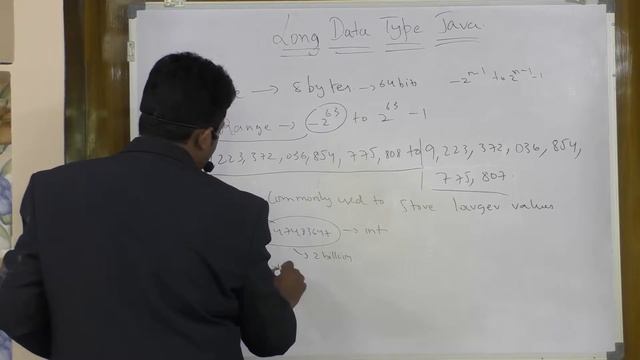 Long Data Type Java
→ 8 bytes → 64 bit -2^n-1 to 2^n-1 -1
Range → -2^63 to 2^63 -1
223, 372, 036, 854, 775, 808 to 9, 223, 372, 036, 854,
775, 807.
Commonly used to store larger values
47483647 → int
→ 2 billion